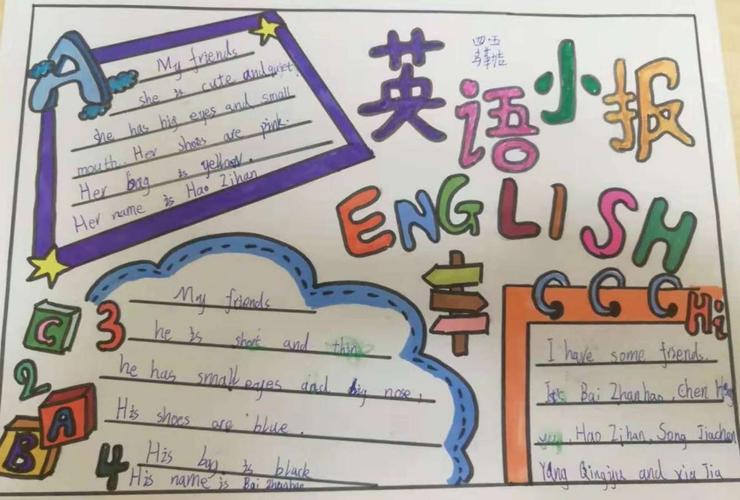 A
My friends
she is cute and quiet.
she has big eyes and small
mouth. Her shoes are pink.
Her bag is yellow.
Her name is Hao Zihan
英语小报
四五
ENGLISH
My friends
he is short and thin
he has small eyes and big nose,
His shoes are blue.
His bag is black
His name is Bai Zhanhao
C
3
2
A
B
4
Hi
I have some friends.
Bai Zhanhao, Chen
Hao Zihan, Song Jiachen
Yang Qingyu and xia Jia